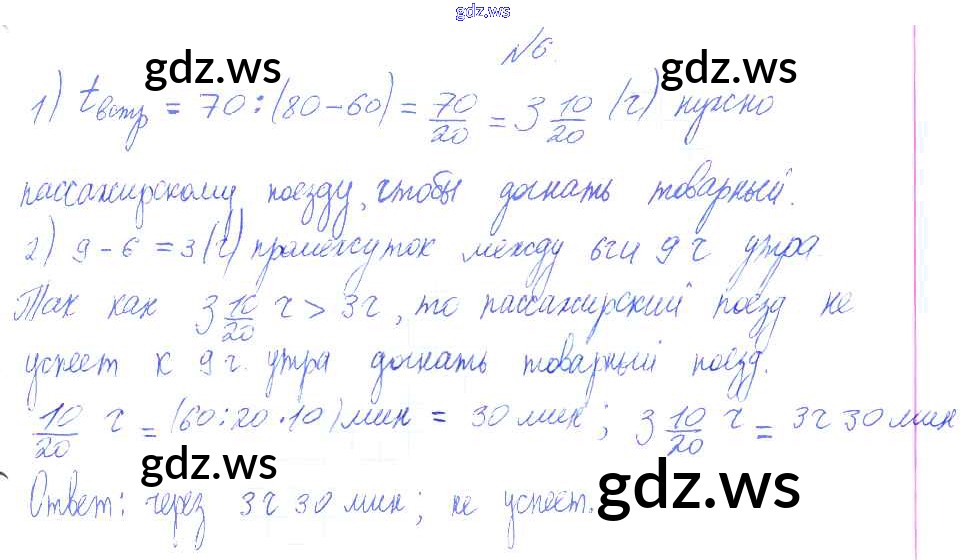 gdz.ws
№6.
gdz.ws gdz.ws
1) tвстр = 70:(80-60) = 70/20 = 3 10/20 (ч) нужно
пассажирскому поезду, чтобы догнать товарный.
2) 9-6 = 3 (ч) промежуток между 6ч и 9 ч утра.
Так как 3 10/20 ч > 3ч, то пассажирский поезд не
успеет к 9 ч. утра догнать товарный поезд.
10/20 ч = (60:20·10) мин = 30 мин; 3 10/20 ч = 3ч 30 мин
gdz.ws gdz.ws
Ответ: через 3ч 30 мин; не успеет.